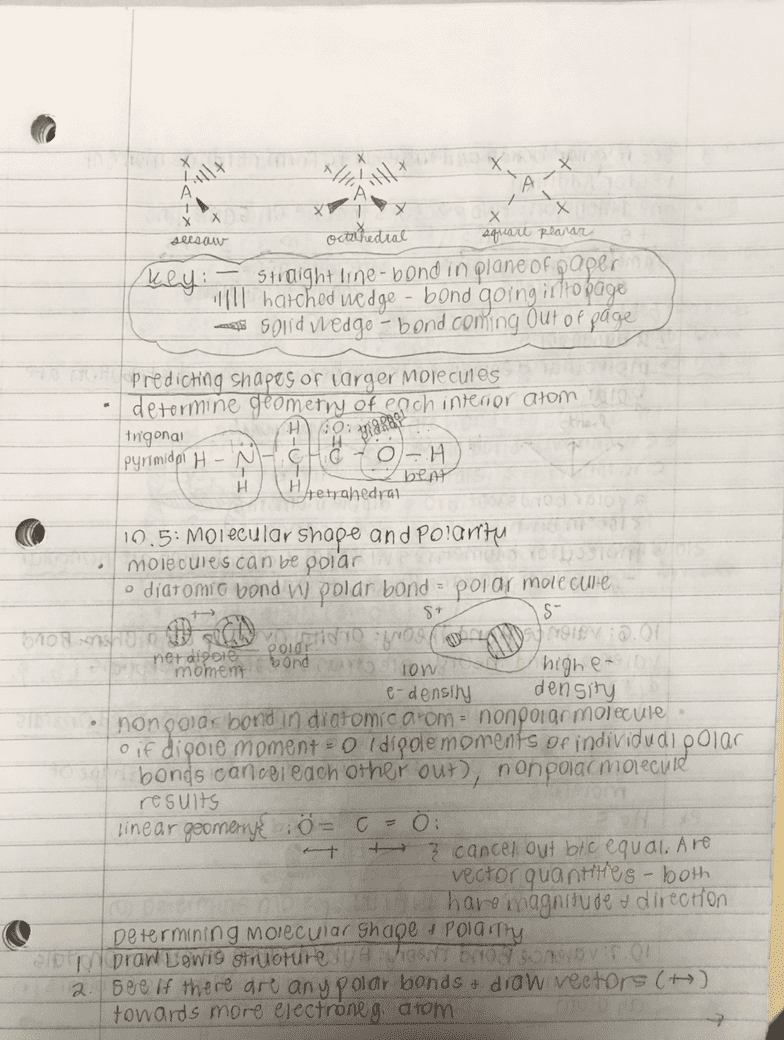 X X X X X X X
A A A
X X X X X X X
seesaw octahedral square planar
Key: — straight line - bond in plane of paper
hatched wedge - bond going into page
solid wedge - bond coming out of page
Predicting shapes of larger molecules
• determine geometry of each interior atom
trigonal H :O: trigonal planar
pyrimidal H - N - C - C - O - H
H H bent
tetrahedral
10.5: Molecular Shape and Polarity
• molecules can be polar
◦ diatomic bond w/ polar bond = polar molecule
δ+ δ-
net dipole polar
moment bond
low high e-
e- density density
• nonpolar bond in diatomic atom = nonpolar molecule
◦ if dipole moment = 0 (dipole moments of individual polar
bonds cancel each other out), nonpolar molecule
results
linear geometry { :Ö = C = Ö:
} cancel out b/c equal. Are
vector quantities - both
have magnitude + direction
Determining Molecular Shape + Polarity
1. Draw Lewis structure
2. See if there are any polar bonds + draw vectors (+→)
towards more electroneg. atom
→